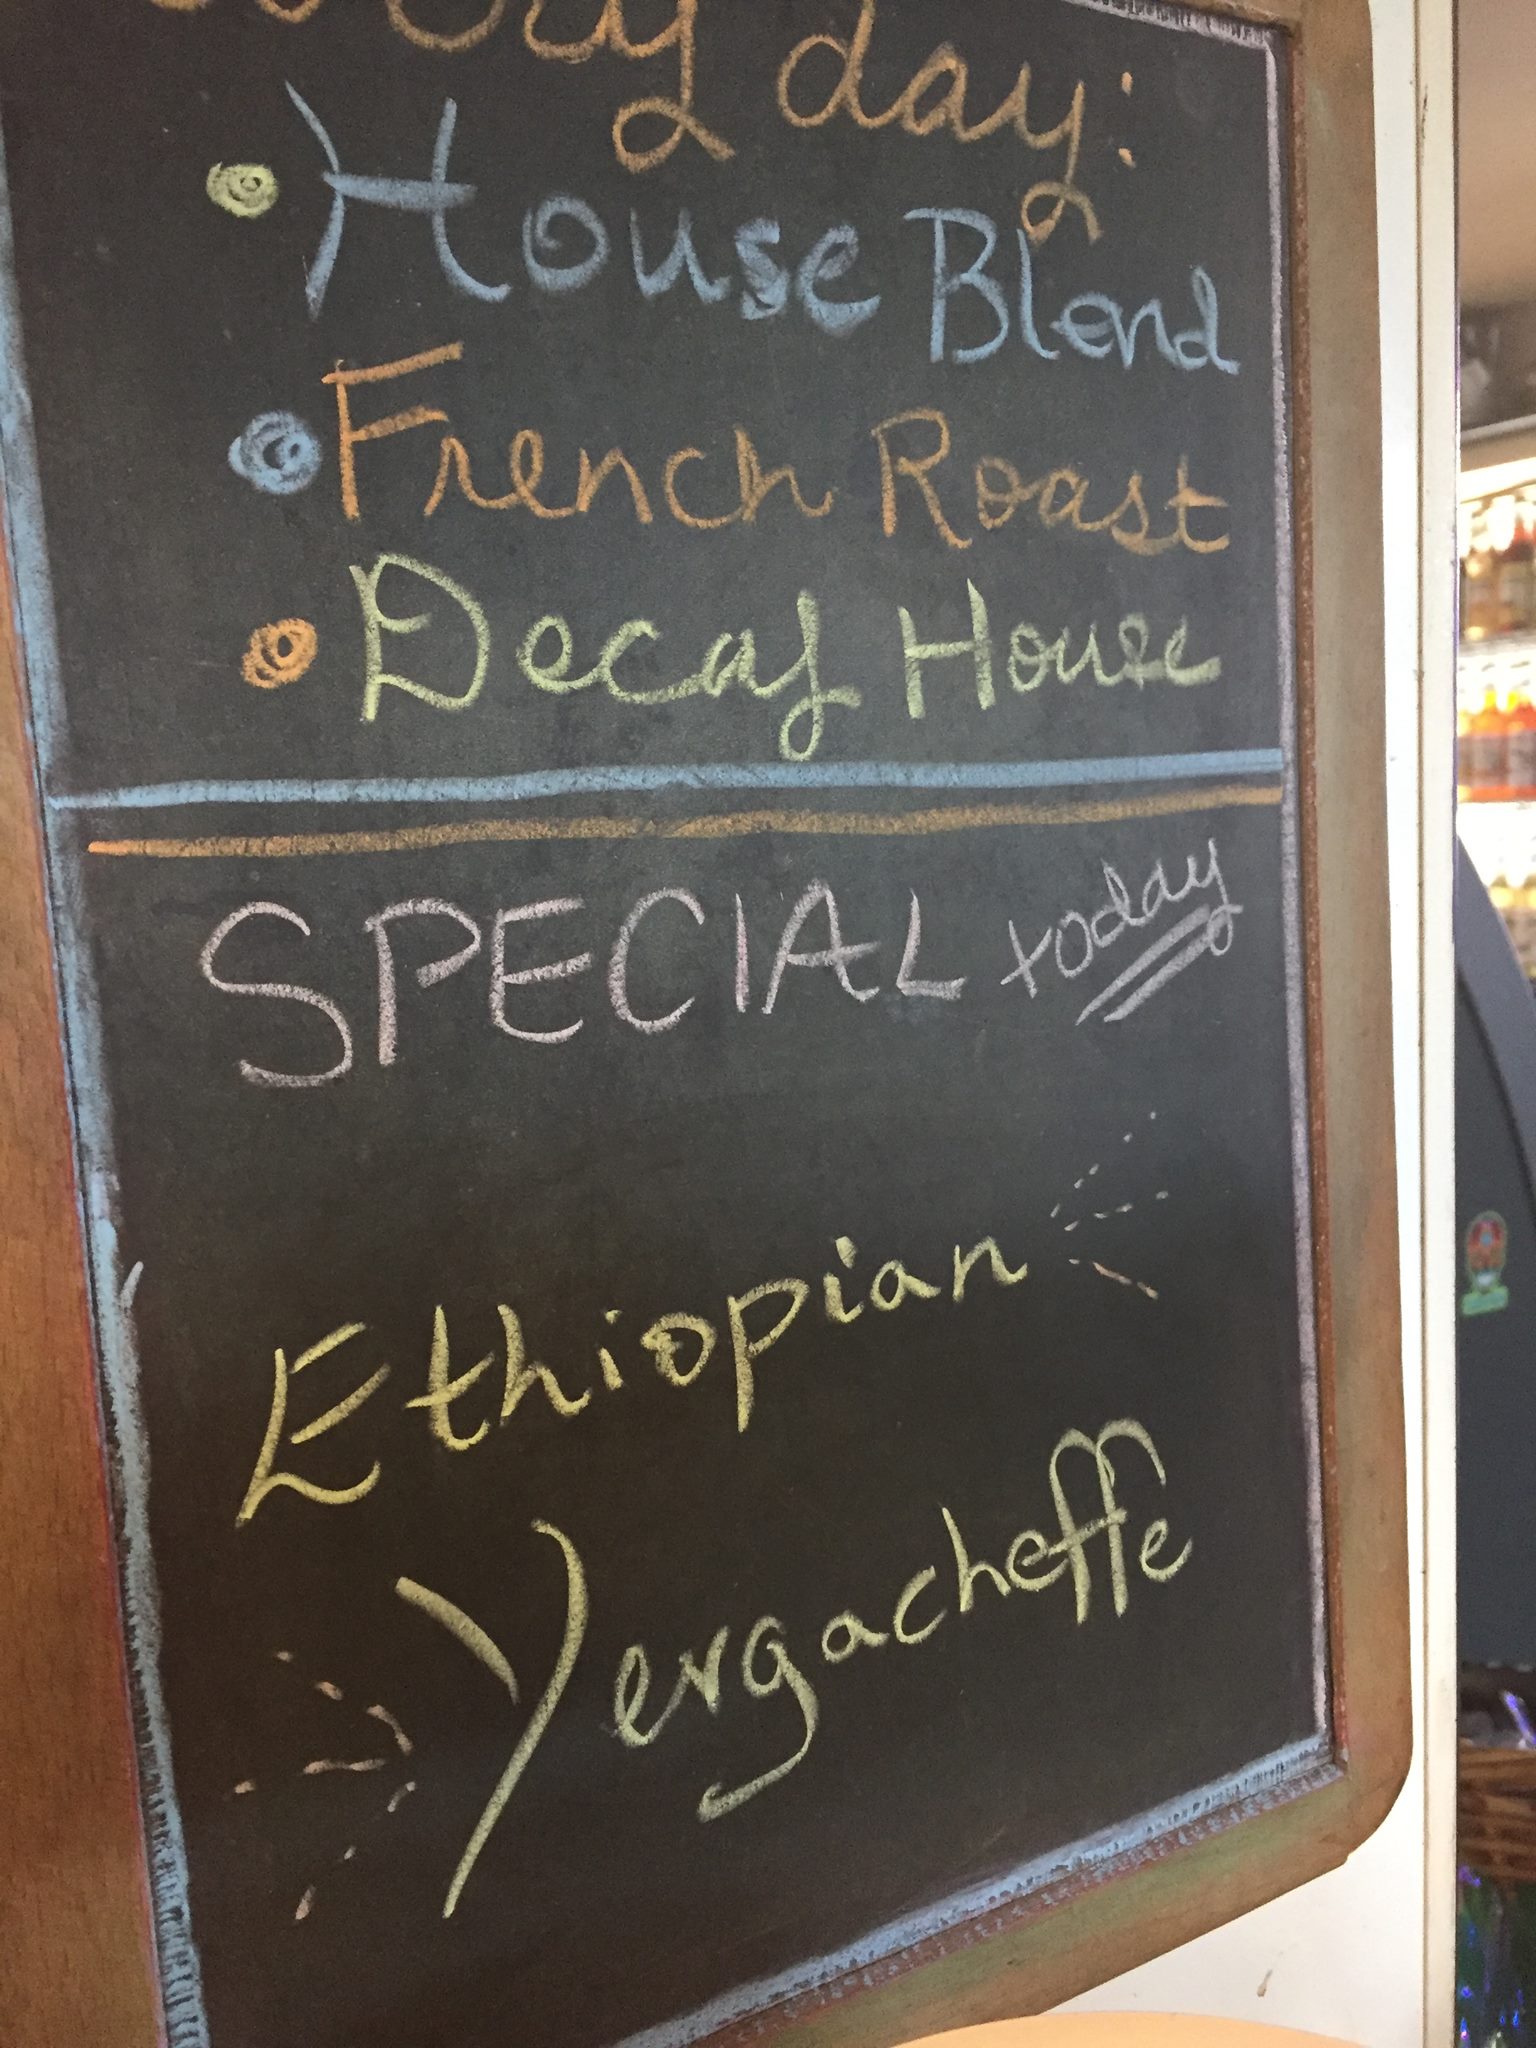 Every day:
• House Blend
• French Roast
• Decaf House
SPECIAL today
Ethiopian
Yergacheffe